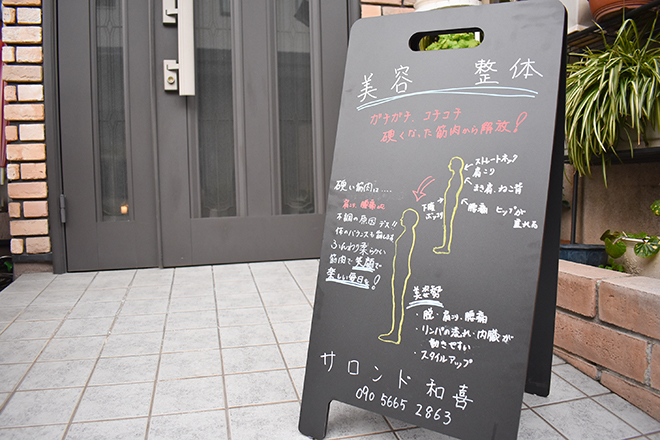 美容 整体
ガチガチ、コチコチ
硬くなった筋肉から解放!
ストレートネック
肩こり
まき肩、ねこ背
下腹
ポッコリ
腰痛
ヒップが
垂れる
硬い筋肉は....
肩こり、腰痛etc
不調の原因デス!!
体のバランスも崩れます
ふんわり柔らかい
筋肉で笑顔で
楽しい毎日を!
美姿勢
・脱・肩こり、腰痛
・リンパの流れ・内臓が
動きやすい
・スタイルアップ
サロンド和喜
090 5665 2863